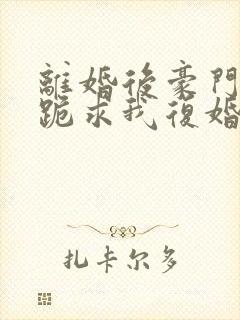 離婚後豪門
跪求我復婚
扎卡尔多